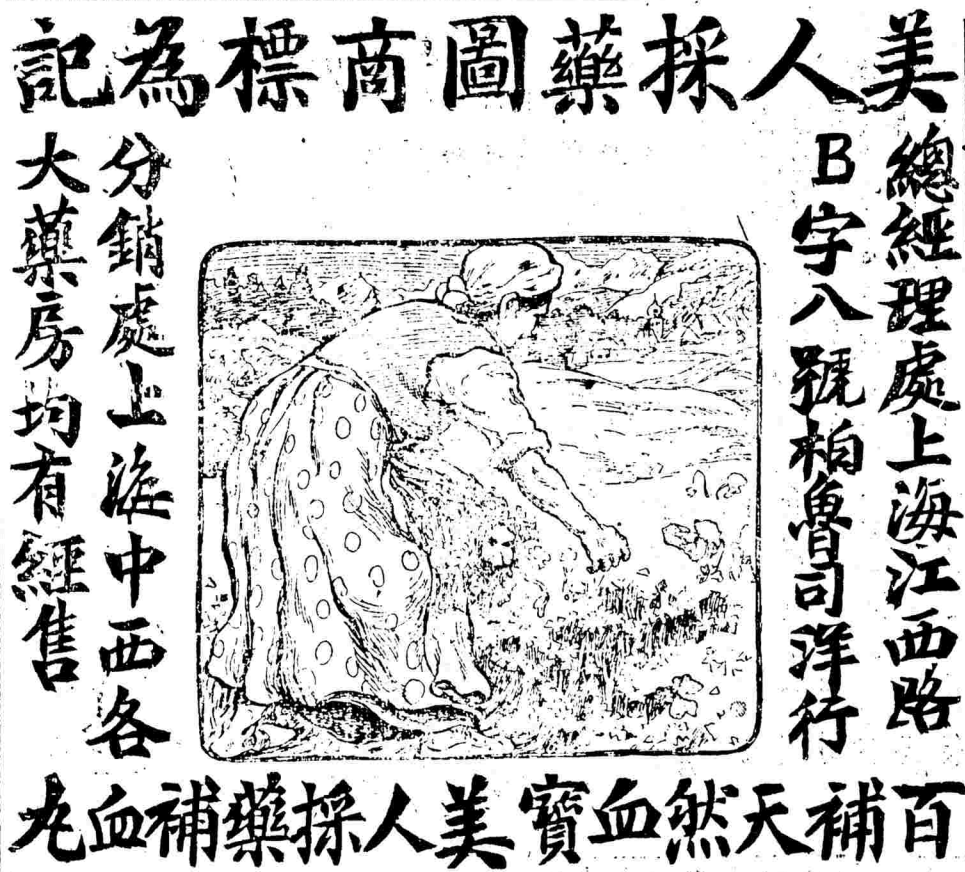 美人採藥圖商標為記
總經理處上海江西路
B字八號柏魯司洋行
分銷處上海中西各
大藥房均有經售
百補天然血寶美人採藥補血丸